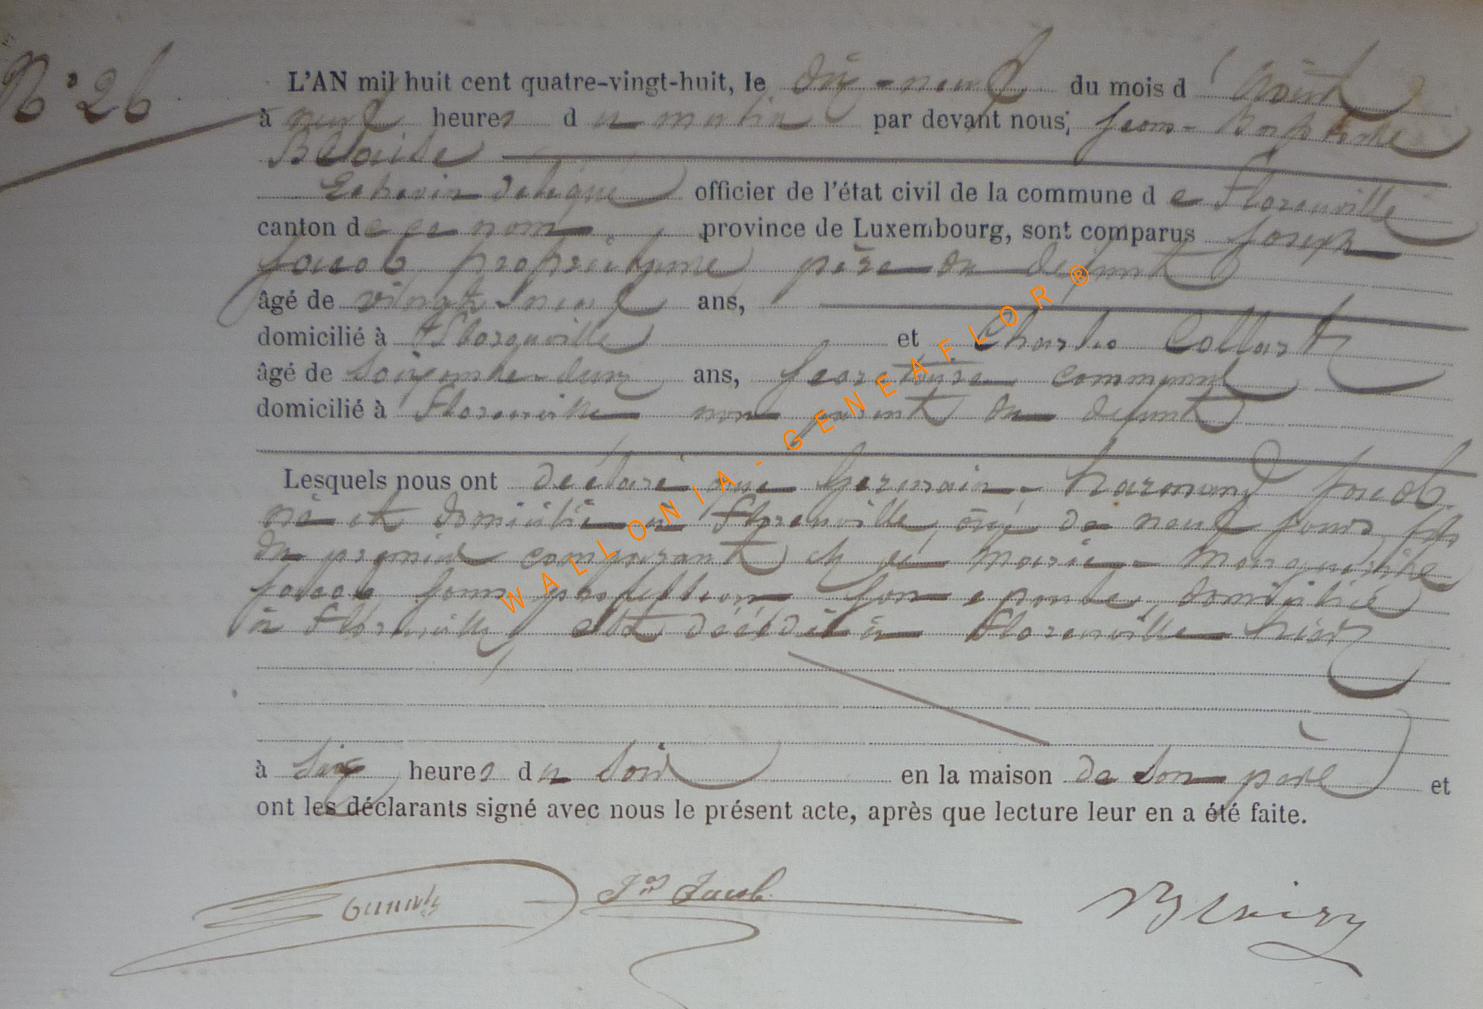 N° 26
L'AN mil huit cent quatre-vingt-huit, le dix-neuf du mois d'Août
à neuf heures du matin par devant nous, Jean-Baptiste
Echevin délégué officier de l'état civil de la commune de Florenville
canton de ce nom, province de Luxembourg, sont comparus Joseph
Jacob propriétaire, père du défunt
âgé de vingt neuf ans,
domicilié à Florenville et Charles Collart
âgé de soixante-deux ans, secrétaire communal
domicilié à Florenville non parent du défunt
Lesquels nous ont déclaré que Germain-Harmand Jacob,
né et domicilié à Florenville, âgé de neuf jours, fils
du premier comparant et de Marie-Marguerite
Jacob sans profession son épouse, domiciliée
à Florenville, est décédé à Florenville hier
à six heures du soir en la maison de son père et
ont les déclarants signé avec nous le présent acte, après que lecture leur en a été faite.
Jacob
WALLONIA - GENEAFLOR ®